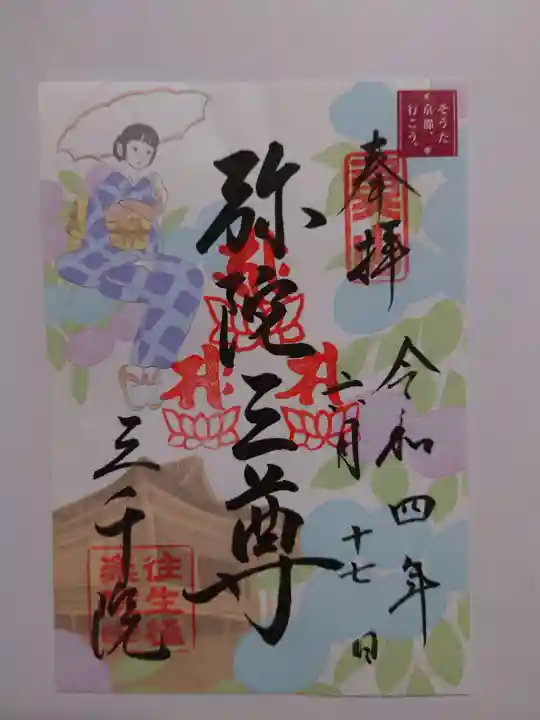 そうだ
京都、
行こう。
奉拝
令和四年
六月十七日
弥陀三尊
三千院
往生極
楽院